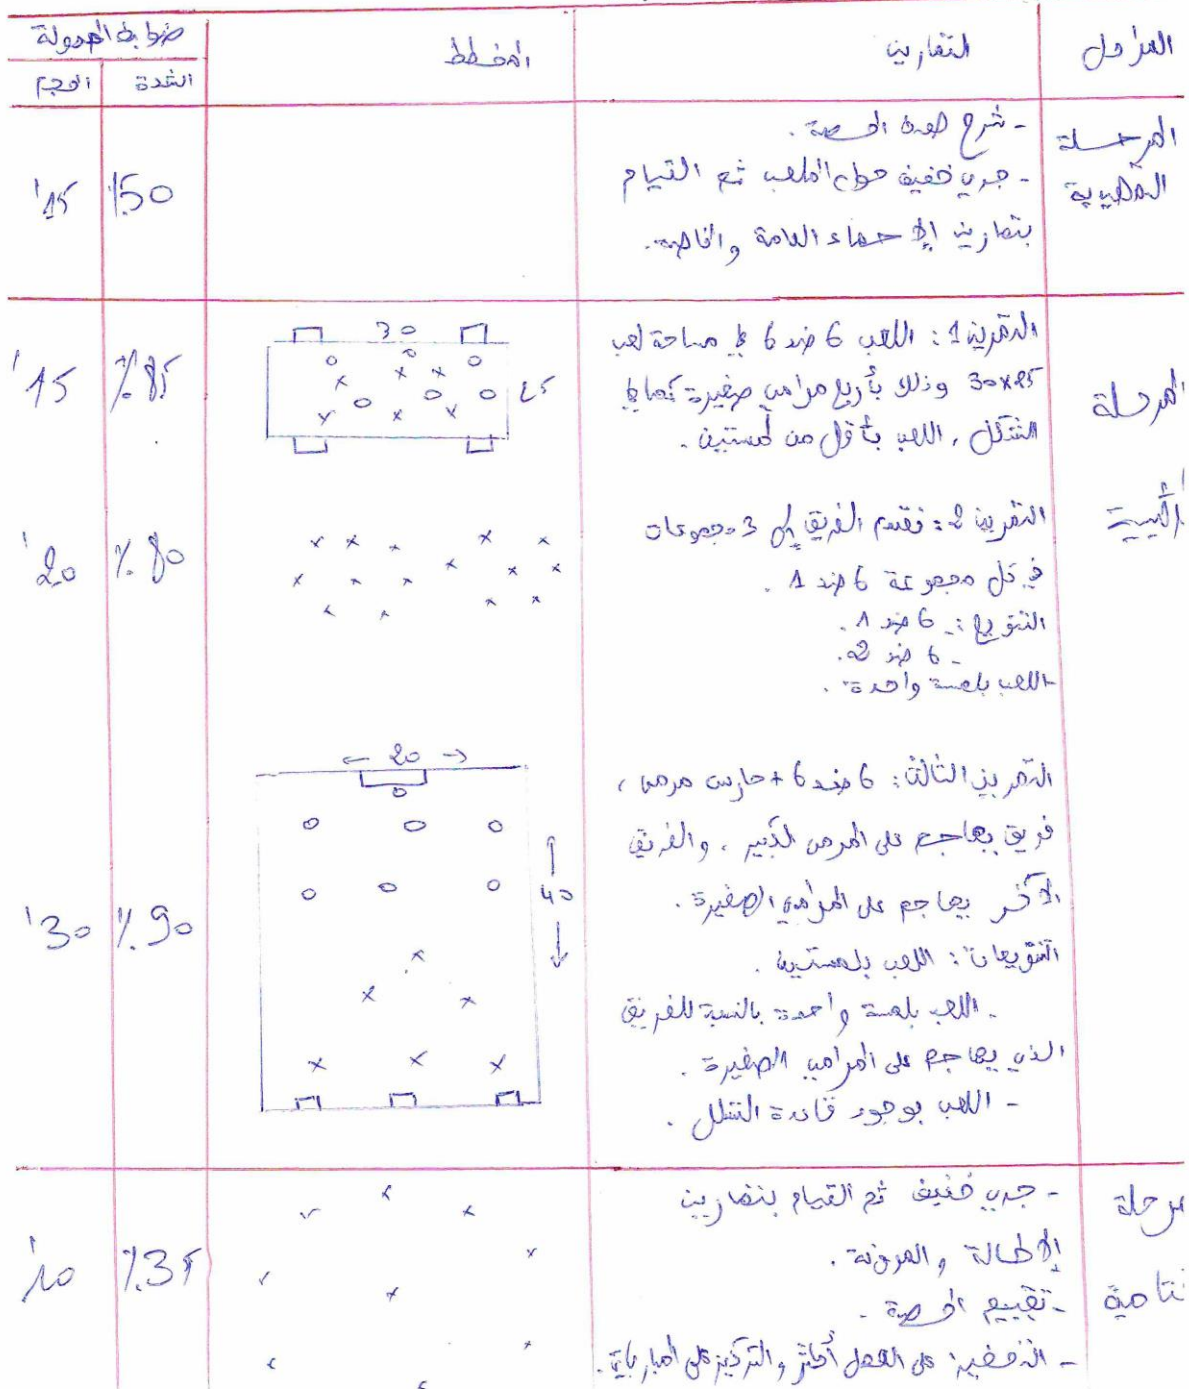 المراحل
التمارين
المخطط
ضوابط الحمولة
الشدة
الحجم
المرحلة
التحضيرية
- شرح هدف الحصة.
- جري خفيف حول الملعب ثم القيام
بتمارين الإحماء العامة والخاصة.
%50
15'
المرحلة
الرئيسية
التمرين 1: اللعب 6 ضد 6 في مساحة لعب
30x25 وذلك بأربع مرامي صغيرة كما في
الشكل, اللعب بأقل من لمستين.
30
25
%85
15'
التمرين 2: نقسم الفريق إلى 3 مجموعات
في كل مجموعة 6 ضد 1.
التنويع: - 6 ضد 1.
- 6 ضد 2.
- اللعب بلمسة واحدة.
%80
20'
التمرين الثالث: 6 ضد 6 + حارس مرمى,
فريق يهاجم على المرمى الكبير, والفريق
الآخر يهاجم على المرامي الصغيرة.
التنويعات: اللعب بلمستين.
- اللعب بلمسة واحدة بالنسبة للفريق
الذي يهاجم على المرامي الصغيرة.
- اللعب بوجود قاعدة التسلل.
20
40
%90
30'
مرحلة
ختامية
- جري خفيف ثم القيام بتمارين
الإطالة والمرونة.
- تقييم الحصة.
- التحفيز على العمل أكثر والتركيز على المباريات.
%35
10'